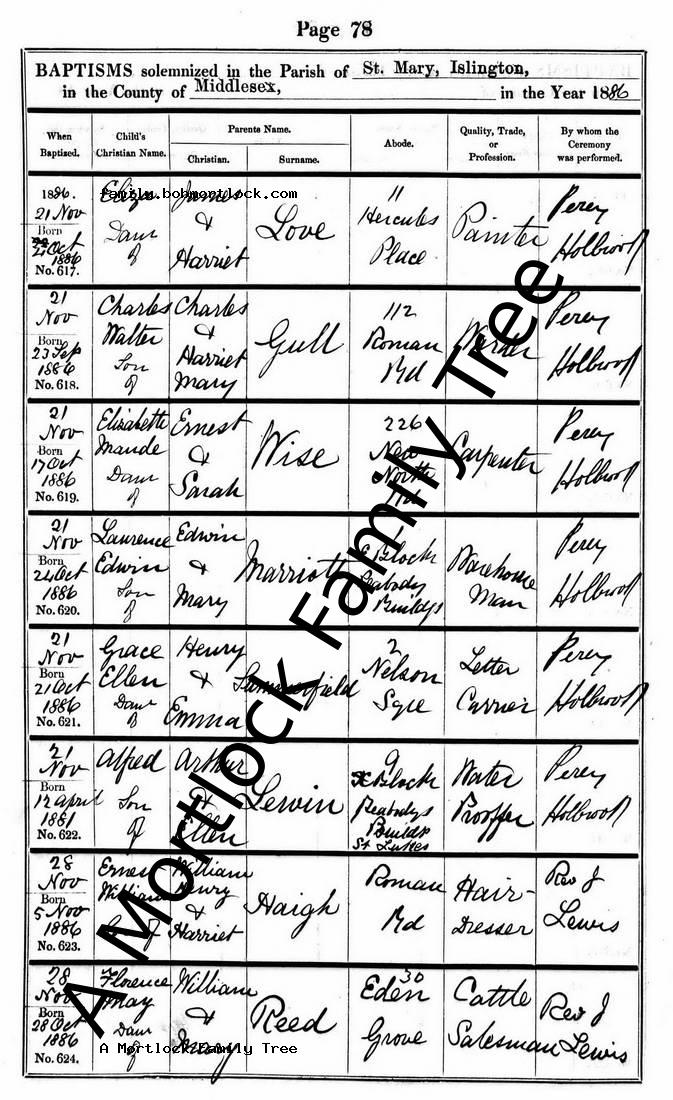 Page 78
BAPTISMS solemnized in the Parish of St. Mary, Islington,
in the County of Middlesex, in the Year 1886
When Baptized.
Child's Christian Name.
Parents Name.
Christian.
Surname.
Abode.
Quality, Trade, or Profession.
By whom the Ceremony was performed.
family.bobmortlock.com
1886.
21 Nov
Born
Oct
1886
No. 617.
Daur
of
&
Harriet
Love
11
Hercules
Place
Painter
Percy
Holbrook
21
Nov
Born
23 Sep
1886
No. 618.
Charles
Walter
Son
of
Charles
&
Harriet
Mary
Gull
112
Roman
Rd
Percy
Holbrook
21
Nov
Born
17 Oct
1886
No. 619.
Elizabeth
Maude
Daur
of
Ernest
&
Sarah
Wise
226
New
North
Rd
Carpenter
Percy
Holbrook
21
Nov
Born
24 Oct
1886
No. 620.
Laurence
Edwin
Son
of
Edwin
&
Mary
Marriott
Block
Peabody
Buildgs
Warehouse
Man
Percy
Holbrook
21
Nov
Born
21 Oct
1886
No. 621.
Grace
Ellen
Daur
of
Henry
&
Emma
Summerfield
2
Nelson
Sqre
Letter
Carrier
Percy
Holbrook
21
Nov
Born
12 April
1881
No. 622.
Alfred
Son
of
Arthur
&
Ellen
Lewin
9
Block
Peabodys
Buildgs
St Lukes
Water
Prooffer
Percy
Holbrook
28
Nov
Born
5 Nov
1886
No. 623.
Ernest
William
of
William
Henry
&
Harriet
Haigh
Roman
Rd
Hair-
Dresser
Rev J
Lewis
28
Nov
Born
28 Oct
1886
No. 624.
Florence
May
Daur
of
William
&
Reed
30
Eden
Grove
Cattle
Salesman
Rev J
Lewis
A Mortlock Family Tree
A Mortlock Family Tree